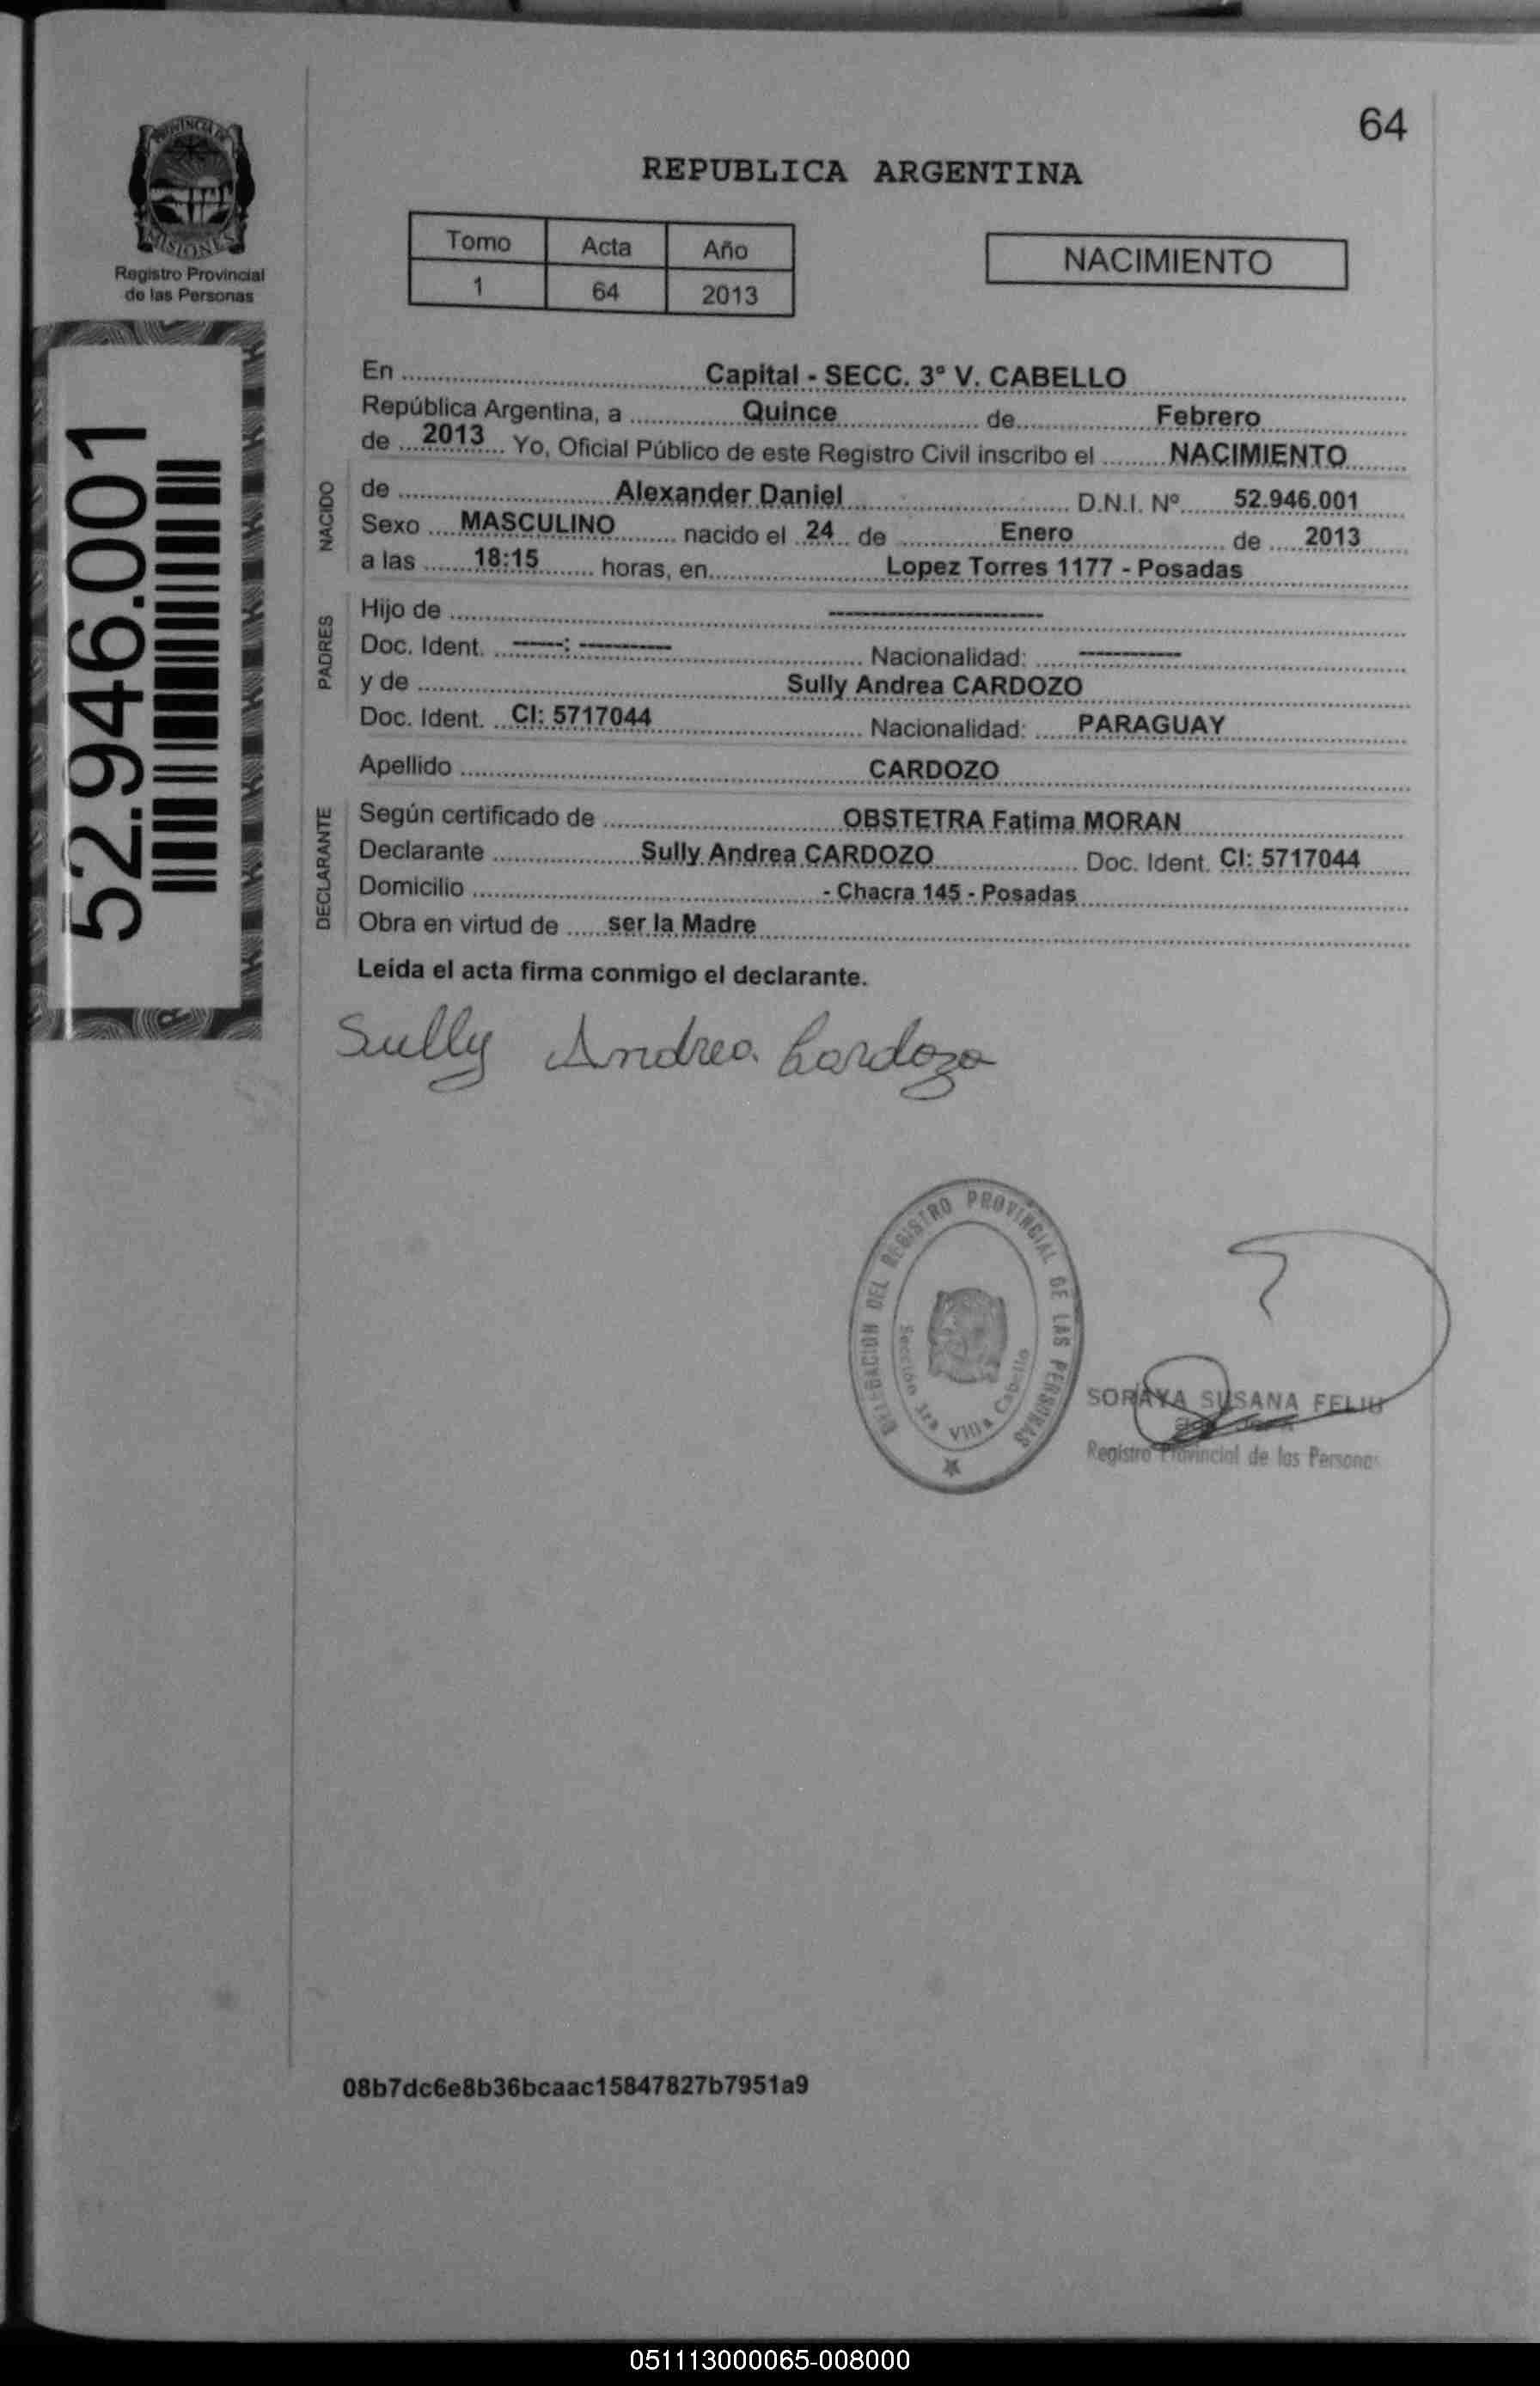 64
PROVINCIA DE
MISIONES
Registro Provincial
de las Personas
REPUBLICA ARGENTINA
Tomo Acta Año
1 64 2013
NACIMIENTO
52.946.001
En Capital - SECC. 3° V. CABELLO
República Argentina, a Quince de Febrero
de 2013 Yo, Oficial Público de este Registro Civil inscribo el NACIMIENTO
NACIDO
de Alexander Daniel D.N.I. Nº 52.946.001
Sexo MASCULINO nacido el 24 de Enero de 2013
a las 18:15 horas, en Lopez Torres 1177 - Posadas
PADRES
Hijo de --------------------
Doc. Ident. -----: --------- Nacionalidad: ----------
y de Sully Andrea CARDOZO
Doc. Ident. CI: 5717044 Nacionalidad: PARAGUAY
Apellido CARDOZO
DECLARANTE
Según certificado de OBSTETRA Fatima MORAN
Declarante Sully Andrea CARDOZO Doc. Ident. CI: 5717044
Domicilio - Chacra 145 - Posadas
Obra en virtud de ser la Madre
Leída el acta firma conmigo el declarante.
Sully Andrea Cardozo
DELEGACION DEL REGISTRO PROVINCIAL DE LAS PERSONAS
Sección 3ra Villa Cabello
SORAYA SUSANA FELIU
Registro Provincial de las Personas
08b7dc6e8b36bcaac15847827b7951a9
051113000065-008000